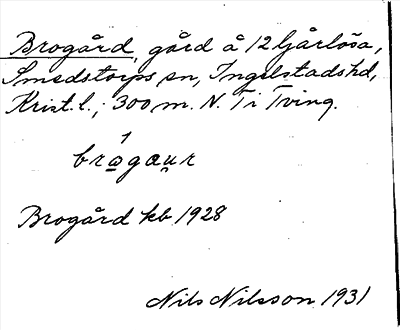 Brogård, gård å 12 Gårlösa,
Smedstorps sn, Ingelstads hd,
Krist. l.; 300 m. N. Ti Tving.
1
bro̲gæu̯r
Brogård kb 1928
Nils Nilsson 1931